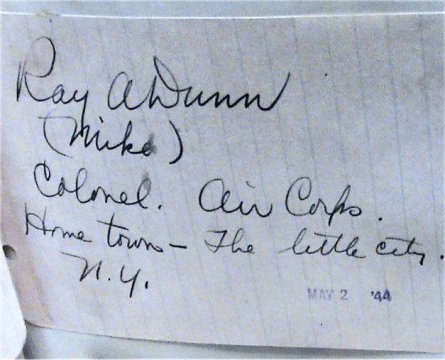 Ray A Dunn
(Mike)
Colonel. Air Corps.
Home town - The little city.
N.Y.
MAY 2 '44